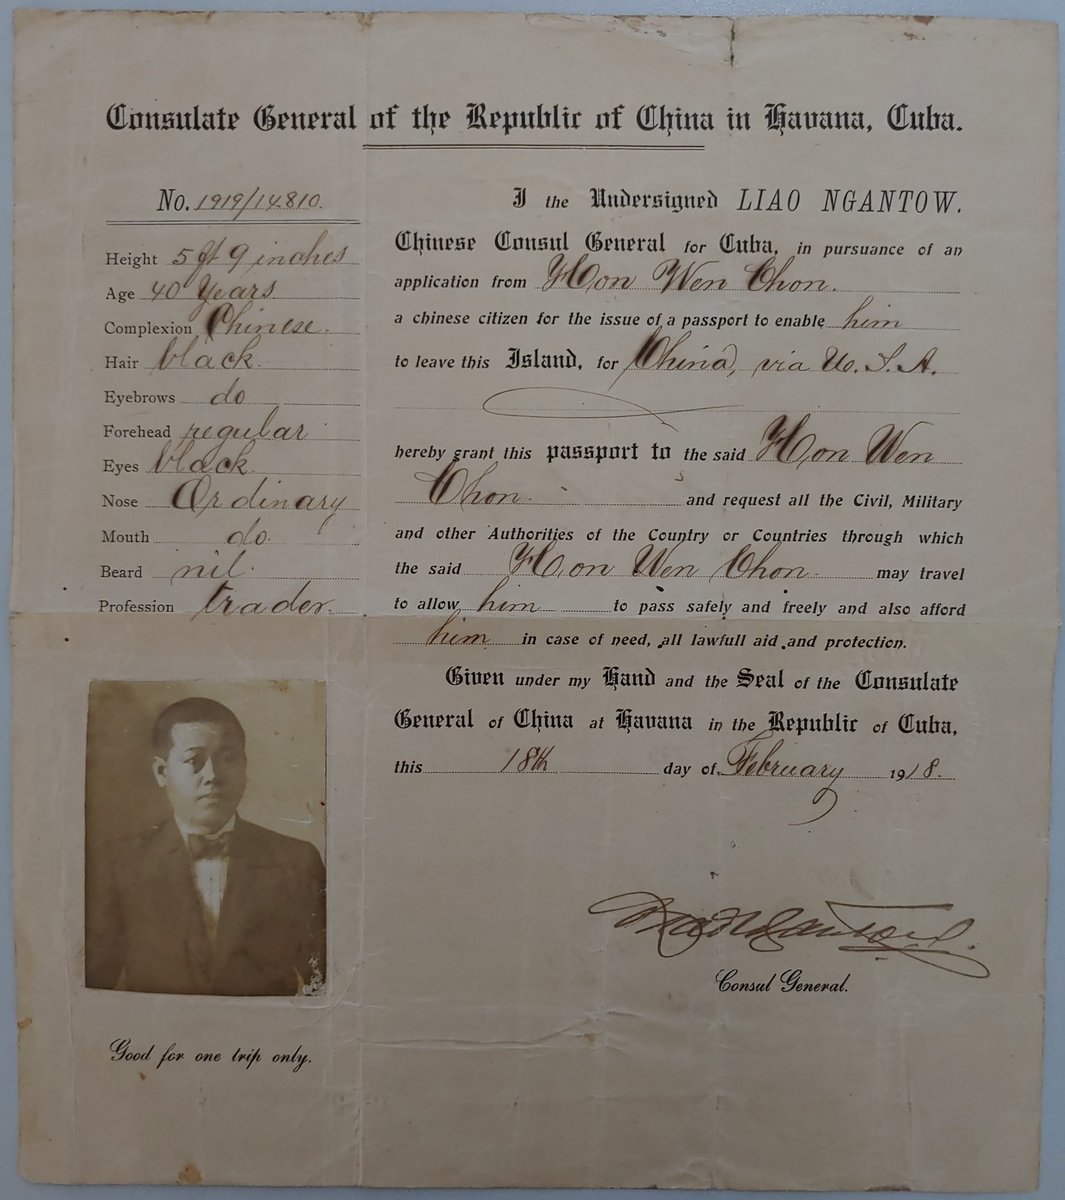 Consulate General of the Republic of China in Havana, Cuba.
No. 1919/14.810.
Height 5 ft 9 inches
Age 40 Years
Complexion Chinese.
Hair black.
Eyebrows do
Forehead regular
Eyes black.
Nose Ordinary
Mouth do.
Beard nil.
Profession trader.
Good for one trip only.
I the Undersigned LIAO NGANTOW.
Chinese Consul General for Cuba, in pursuance of an
application from Hon Wen Chon.
a chinese citizen for the issue of a passport to enable him
to leave this Island, for China, via U. S. A.
hereby grant this passport to the said Hon Wen
Chon. and request all the Civil, Military
and other Authorities of the Country or Countries through which
the said Hon Wen Chon. may travel
to allow him to pass safely and freely and also afford
him in case of need, all lawfull aid and protection.
Given under my Hand and the Seal of the Consulate
General of China at Havana in the Republic of Cuba,
this 18th day of February 1918.
Consul General.